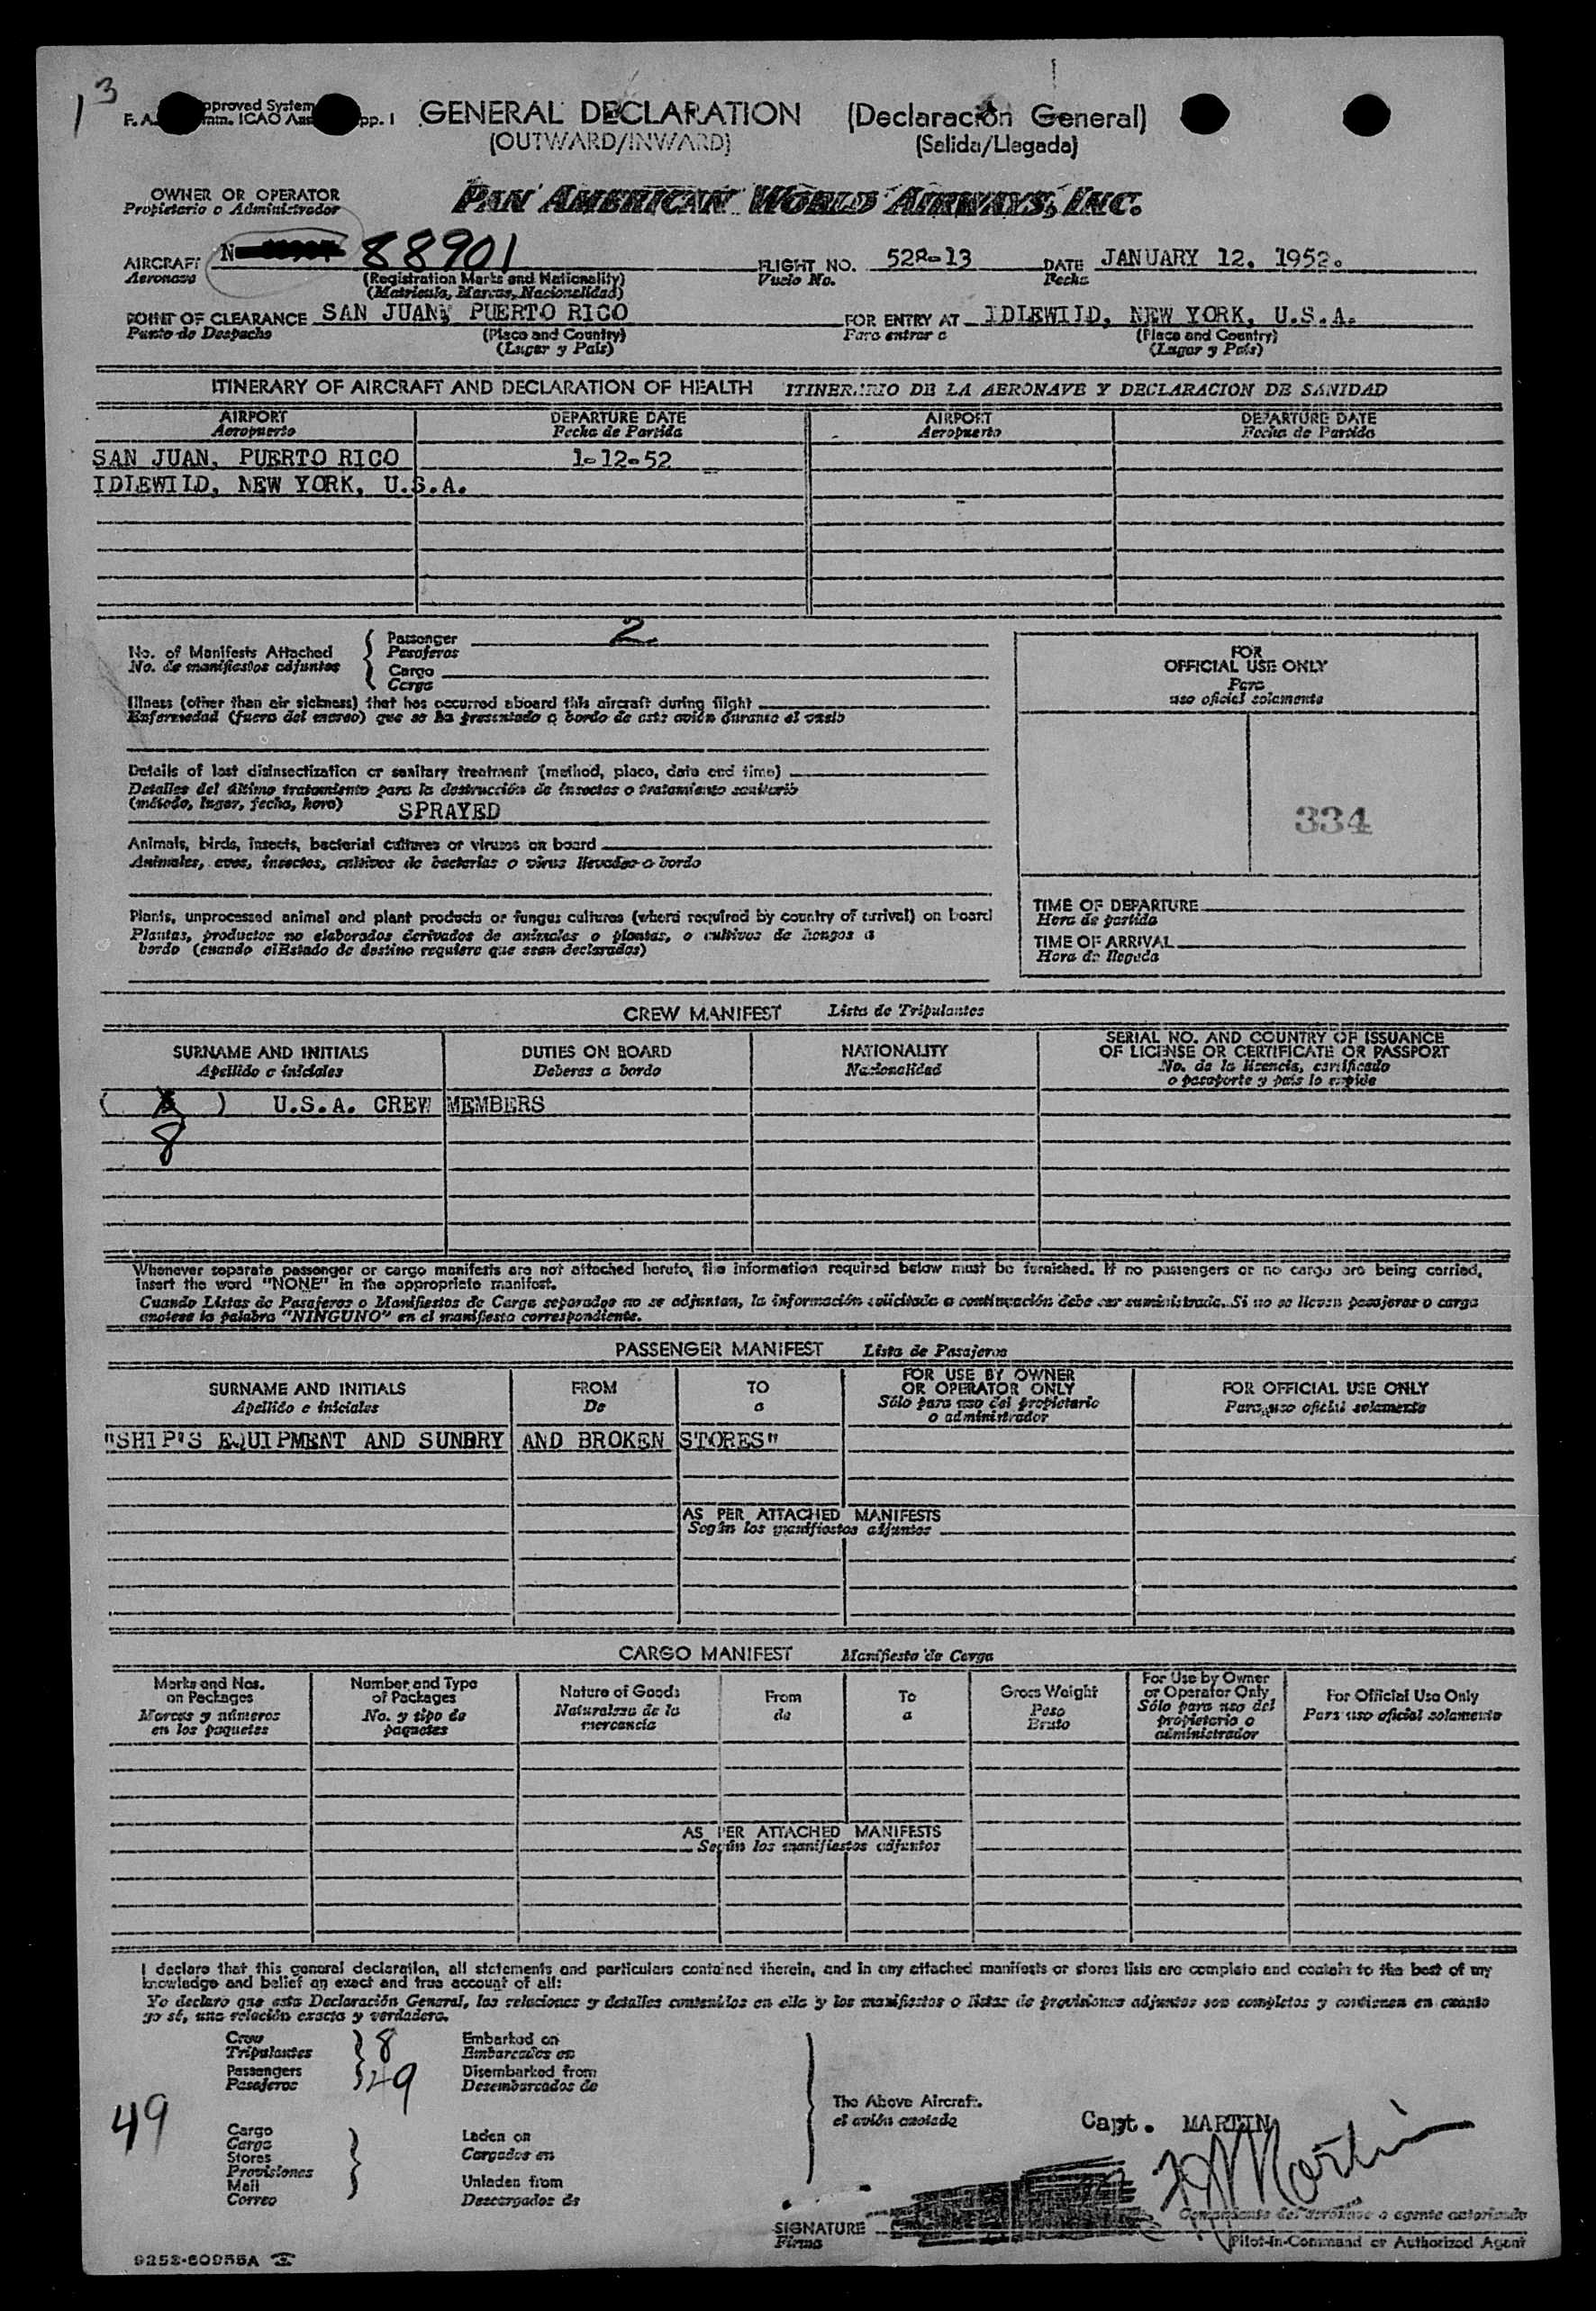 13
F. A. pproved System
mm. ICAO Ann pp. 1
GENERAL DECLARATION (Declaración General)
(OUTWARD/INWARD) (Salida/Llegada)
OWNER OR OPERATOR
Propietario o Administrador
PAN AMERICAN WORLD AIRWAYS, INC.
AIRCRAFT N 88901 FLIGHT NO. 528-13 DATE JANUARY 12, 1952.
Aeronave (Registration Marks and Nationality) Vuelo No. Fecha
(Matricula, Marcas, Nacionalidad)
POINT OF CLEARANCE SAN JUAN, PUERTO RICO FOR ENTRY AT IDLEWILD, NEW YORK, U.S.A.
Punto de Despacho (Place and Country) Para entrar a (Place and Country)
(Lugar y País) (Lugar y País)
ITINERARY OF AIRCRAFT AND DECLARATION OF HEALTH ITINERARIO DE LA AERONAVE Y DECLARACION DE SANIDAD
AIRPORT DEPARTURE DATE AIRPORT DEPARTURE DATE
Aeropuerto Fecha de Partida Aeropuerto Fecha de Partida
SAN JUAN, PUERTO RICO 1-12-52
IDLEWILD, NEW YORK, U.S.A.
No. of Manifests Attached
No. de manifiestos adjuntos
Passenger 2
Pasajeros
Cargo
Carga
Illness (other than air sickness) that has occurred aboard this aircraft during flight
Enfermedad (fuera del mareo) que se ha presentado a bordo de este avión durante el vuelo
Details of last disinsectization or sanitary treatment (method, place, date and time)
Detalles del último tratamiento para la destrucción de insectos o tratamiento sanitario
(método, lugar, fecha, hora) SPRAYED
Animals, birds, insects, bacterial cultures or viruses on board
Animales, aves, insectos, cultivos de bacterias o virus llevados a bordo
Plants, unprocessed animal and plant products or fungus cultures (where required by country of arrival) on board
Plantas, productos no elaborados derivados de animales o plantas, o cultivos de hongos a
bordo (cuando el Estado de destino requiere que sean declarados)
FOR
OFFICIAL USE ONLY
Para
uso oficial solamente
334
TIME OF DEPARTURE
Hora de partida
TIME OF ARRIVAL
Hora de llegada
CREW MANIFEST Lista de Tripulantes
SURNAME AND INITIALS DUTIES ON BOARD NATIONALITY SERIAL NO. AND COUNTRY OF ISSUANCE
OF LICENSE OR CERTIFICATE OR PASSPORT
Apellido e iniciales Deberes a bordo Nacionalidad No. de la licencia, certificado
o pasaporte y país lo expide
( ) U.S.A. CREW MEMBERS
8
Whenever separate passenger or cargo manifests are not attached hereto, the information required below must be furnished. If no passengers or no cargo are being carried,
insert the word "NONE" in the appropriate manifest.
Cuando Listas de Pasajeros o Manifiestos de Carga separados no se adjuntan, la información solicitada a continuación debe ser suministrada. Si no se llevan pasajeros o carga
anótese la palabra "NINGUNO" en el manifiesto correspondiente.
PASSENGER MANIFEST Lista de Pasajeros
SURNAME AND INITIALS FROM TO FOR USE BY OWNER
OR OPERATOR ONLY FOR OFFICIAL USE ONLY
Apellido e iniciales De a Sólo para uso del propietario
o administrador Para uso oficial solamente
"SHIP'S EQUIPMENT AND SUNDRY AND BROKEN STORES"
AS PER ATTACHED MANIFESTS
Según los manifiestos adjuntos
CARGO MANIFEST Manifiesto de Carga
Marks and Nos.
on Packages
Marcas y números
en los paquetes
Number and Type
of Packages
No. y tipo de
paquetes
Nature of Goods
Naturaleza de la
mercancía
From
de
To
a
Gross Weight
Peso
Bruto
For Use by Owner
or Operator Only
Sólo para uso del
propietario o
administrador
For Official Use Only
Para uso oficial solamente
AS PER ATTACHED MANIFESTS
Según los manifiestos adjuntos
I declare that this general declaration, all statements and particulars contained therein, and in any attached manifests or stores lists are complete and contain to the best of my
knowledge and belief an exact and true account of all:
Yo declaro que esta Declaración General, las relaciones y detalles contenidos en ella y los manifiestos o listas de provisiones adjuntos son completos y contienen en cuanto
yo sé, una relación exacta y verdadera.
Crew 8 Embarked on
Tripulantes Embarcados en
Passengers 49 Disembarked from
Pasajeros Desembarcados de
49
The Above Aircraft.
el avión anotado
Cargo
Carga
Stores
Provisiones
Mail
Correo
Laden on
Cargados en
Unladen from
Descargados de
Capt. MARTIN
Martin
SIGNATURE
Firma
Comandante del aeronave o agente autorizado
Pilot-in-Command or Authorized Agent
9252-60955A